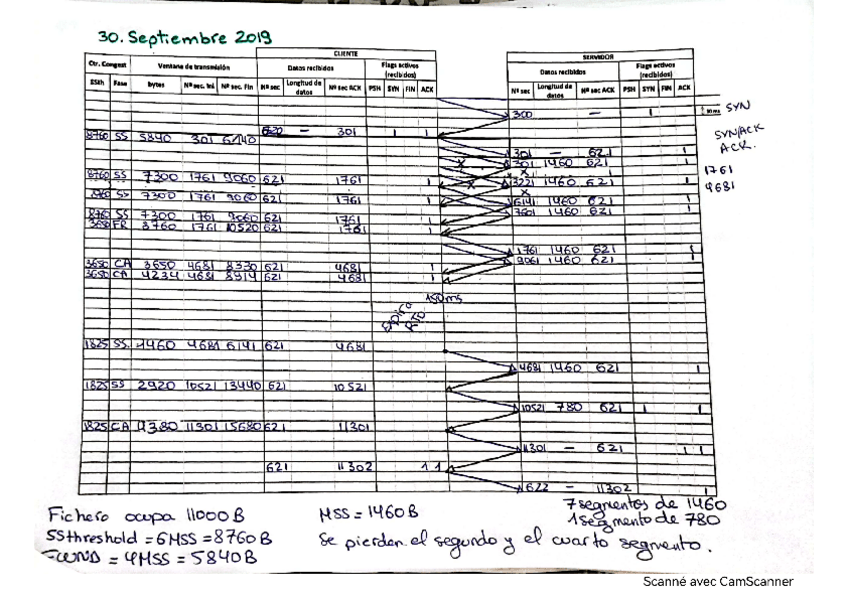 30. Septiembre 2019
CLIENTE
SERVIDOR
Ctr. Congest Ventana de transmisión Datos recibidos Flags activos (recibidos)
Datos recibidos Flags activos (recibidos)
SSth Fase bytes Nº sec. Ini Nº sec. Fin Nº sec Longitud de datos Nº sec ACK PSH SYN FIN ACK
Nº sec Longitud de datos Nº sec ACK PSH SYN FIN ACK
300 — 1 SYN
8760 SS 5840 301 6140 620 — 301 1 1
SYN/ACK
ACK.
301 — 621 1
301 1460 621
1761
8760 SS 7300 1761 9060 621 1761 1
3221 1460 621 1
4681
8760 SS 7300 1761 9060 621 1761 1
6141 1460 621 1
7601 1460 621
8760 SS 7300 1761 9060 621 1761
3650 FR 8760 1761 10520 621 1761 1
1761 1460 621 1
9061 1460 621
3650 CA 3650 4681 8330 621 4681 1
3650 CA 4234 4681 8914 621 4681
150ms
Expira RTO
1825 SS. 1460 4681 6141 621 4681
4681 1460 621 1
1825 SS 2920 10521 13440 621 10521
10521 780 621 1
1825 CA 4380 11301 15680 621 11301
11301 — 621 1 1
621 11302 1 1
622 — 11302 1
Fichero ocupa 11000B
MSS = 1460B
7 segmentos de 1460
1 segmento de 780
SSthreshold = 6MSS = 8760B
Se pierden el segundo y el cuarto segmento.
= 4MSS = 5840B
Scanné avec CamScanner